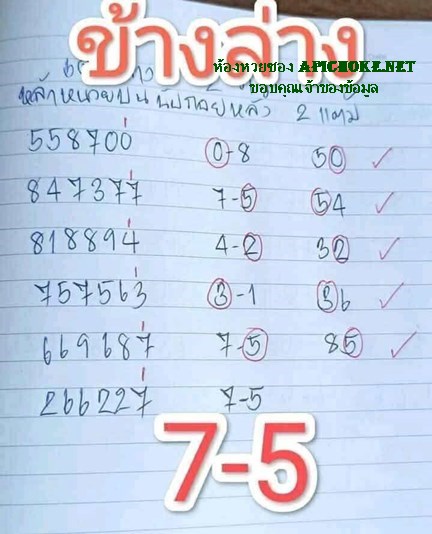 ข้างล่าง
ห้องหวยซอง APICHOKE.NET
ขอบคุณเจ้าของข้อมูล
หลักหน่วยบน นับถอยหลัง 2 แต้ม
558700 0-8 50 ✓
847377 7-5 54 ✓
818894 4-2 32 ✓
757563 3-1 36 ✓
669687 7-5 85 ✓
266227 7-5
7-5